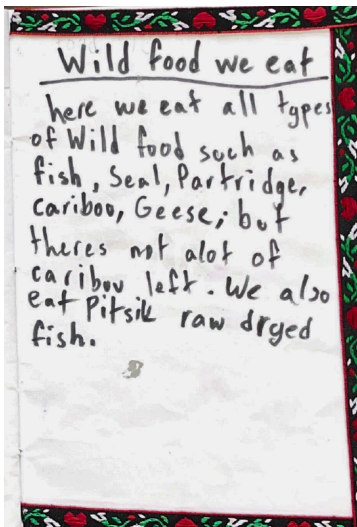 Wild food we eat
here we eat all types
of Wild food such as
fish, Seal, Partridge,
cariboo, Geese; but
theres not alot of
caribou left. We also
eat Pitsik raw dryed
fish.